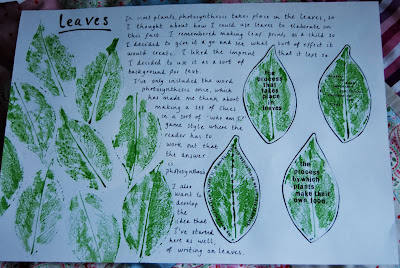 Leaves
In most plants, photosynthesis takes place in the leaves, so
I thought about how I could use leaves to elaborate on
this fact. I remembered making leaf prints as a child so
I decided to give it a go and see what sort of effect it
would create. I liked the imprint that it left so
I decided to use it as a sort of
background for text.
I've only included the word
photosynthesis once, which
has made me think about
making a set of clues
in a sort of 'who am I?'
game style where the
reader has to
work out that
the answer
is
photosynthesis.
I also
want to
develop
the
idea that
I've started
here as well,
of writing on leaves.
process
that
takes
place
in
leaves
The
process
by which
plants
make their
own food.